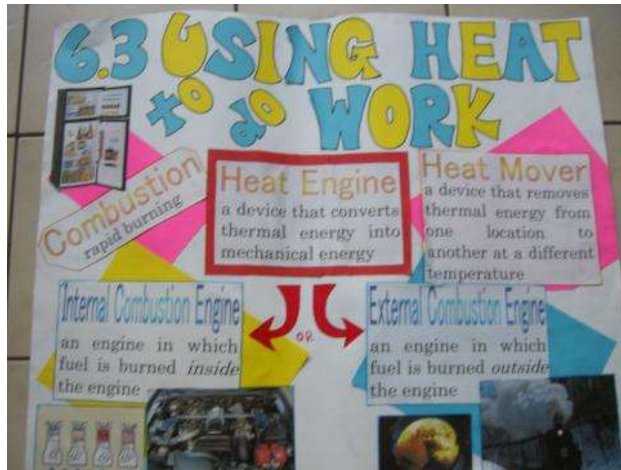 6.3 USING HEAT
to do WORK
Combustion
rapid burning
Heat Engine
a device that converts
thermal energy into
mechanical energy
Heat Mover
a device that removes
thermal energy from
one location to
another at a different
temperature
Internal Combustion Engine
an engine in which
fuel is burned inside
the engine
OR
External Combustion Engine
an engine in which
fuel is burned outside
the engine